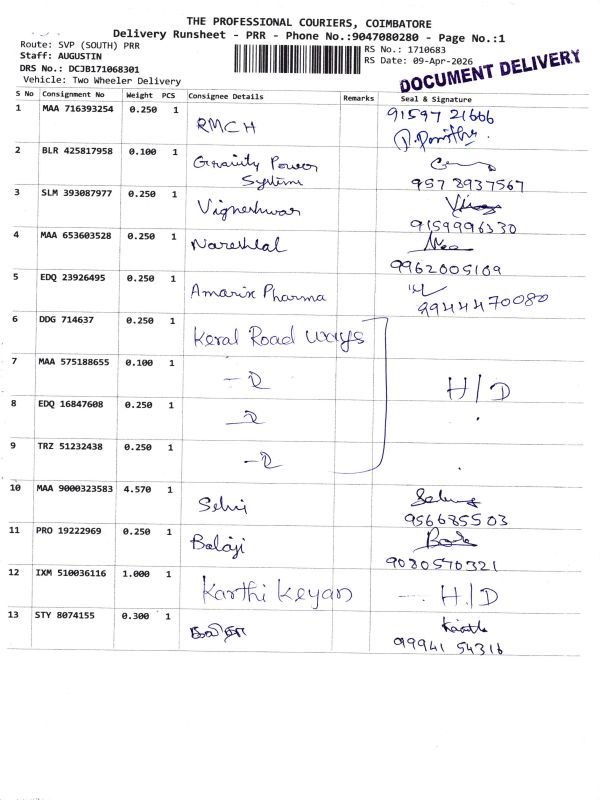 THE PROFESSIONAL COURIERS, COIMBATORE
Delivery Runsheet - PRR - Phone No.:9047080280 - Page No.:1
Route: SVP (SOUTH) PRR
Staff: AUGUSTIN
DRS No.: DCJB171068301
Vehicle: Two Wheeler Delivery
RS No.: 1710683
RS Date: 09-Apr-2026
DOCUMENT DELIVERY
S No Consignment No Weight PCS Consignee Details Remarks Seal & Signature
1 MAA 716393254 0.250 1 RMCH 91597 21666
2 BLR 425817958 0.100 1 Gravity Power
Systems 957 8937567
3 SLM 393087977 0.250 1 Vigneshwar 9159996330
4 MAA 653603528 0.250 1 Nareshlal 9962005109
5 EDQ 23926495 0.250 1 Amarix Pharma 9944470080
6 DDG 714637 0.250 1 Keral Road ways
7 MAA 575188655 0.100 1 H/D
8 EDQ 16847608 0.250 1
9 TRZ 51232438 0.250 1
10 MAA 9000323583 4.570 1 Selvi
956685503
11 PRO 19222969 0.250 1 Balaji
9080570321
12 IXM 510036116 1.000 1 Karthi Keyan - H/D
13 STY 8074155 0.300 1
99941 54316